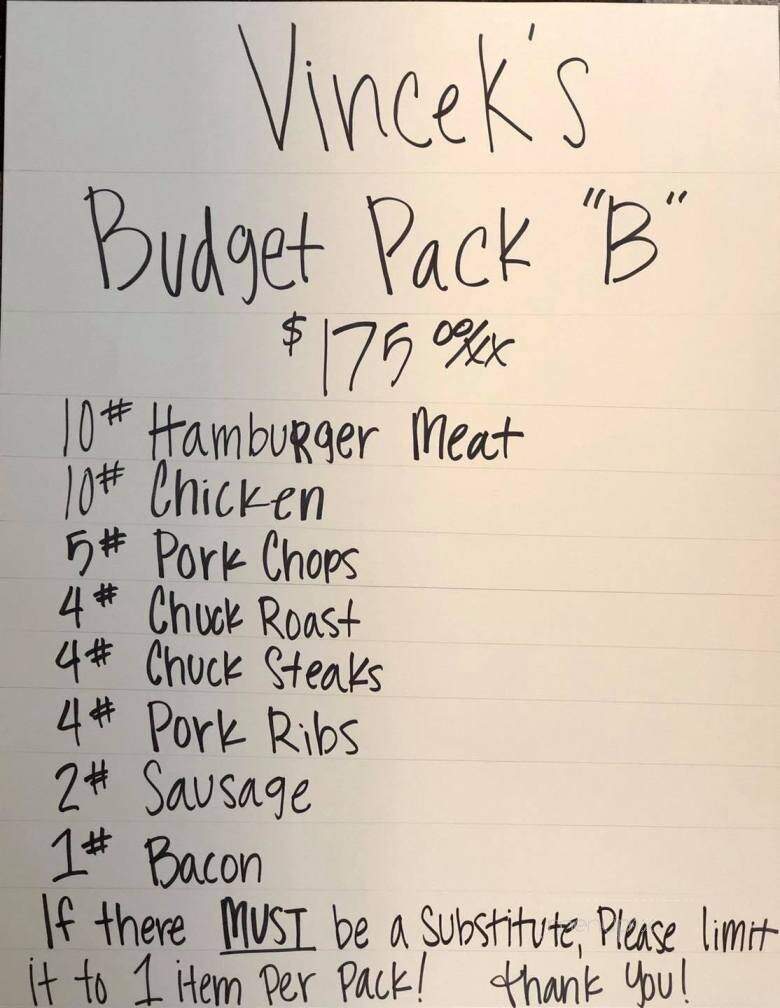 Vincek's
Budget Pack "B"
$175 00/xx
10# Hamburger Meat
10# Chicken
5# Pork Chops
4# Chuck Roast
4# Chuck Steaks
4# Pork Ribs
2# Sausage
1# Bacon
If there MUST be a Substitute, Please limit
it to 1 item Per Pack! thank You!